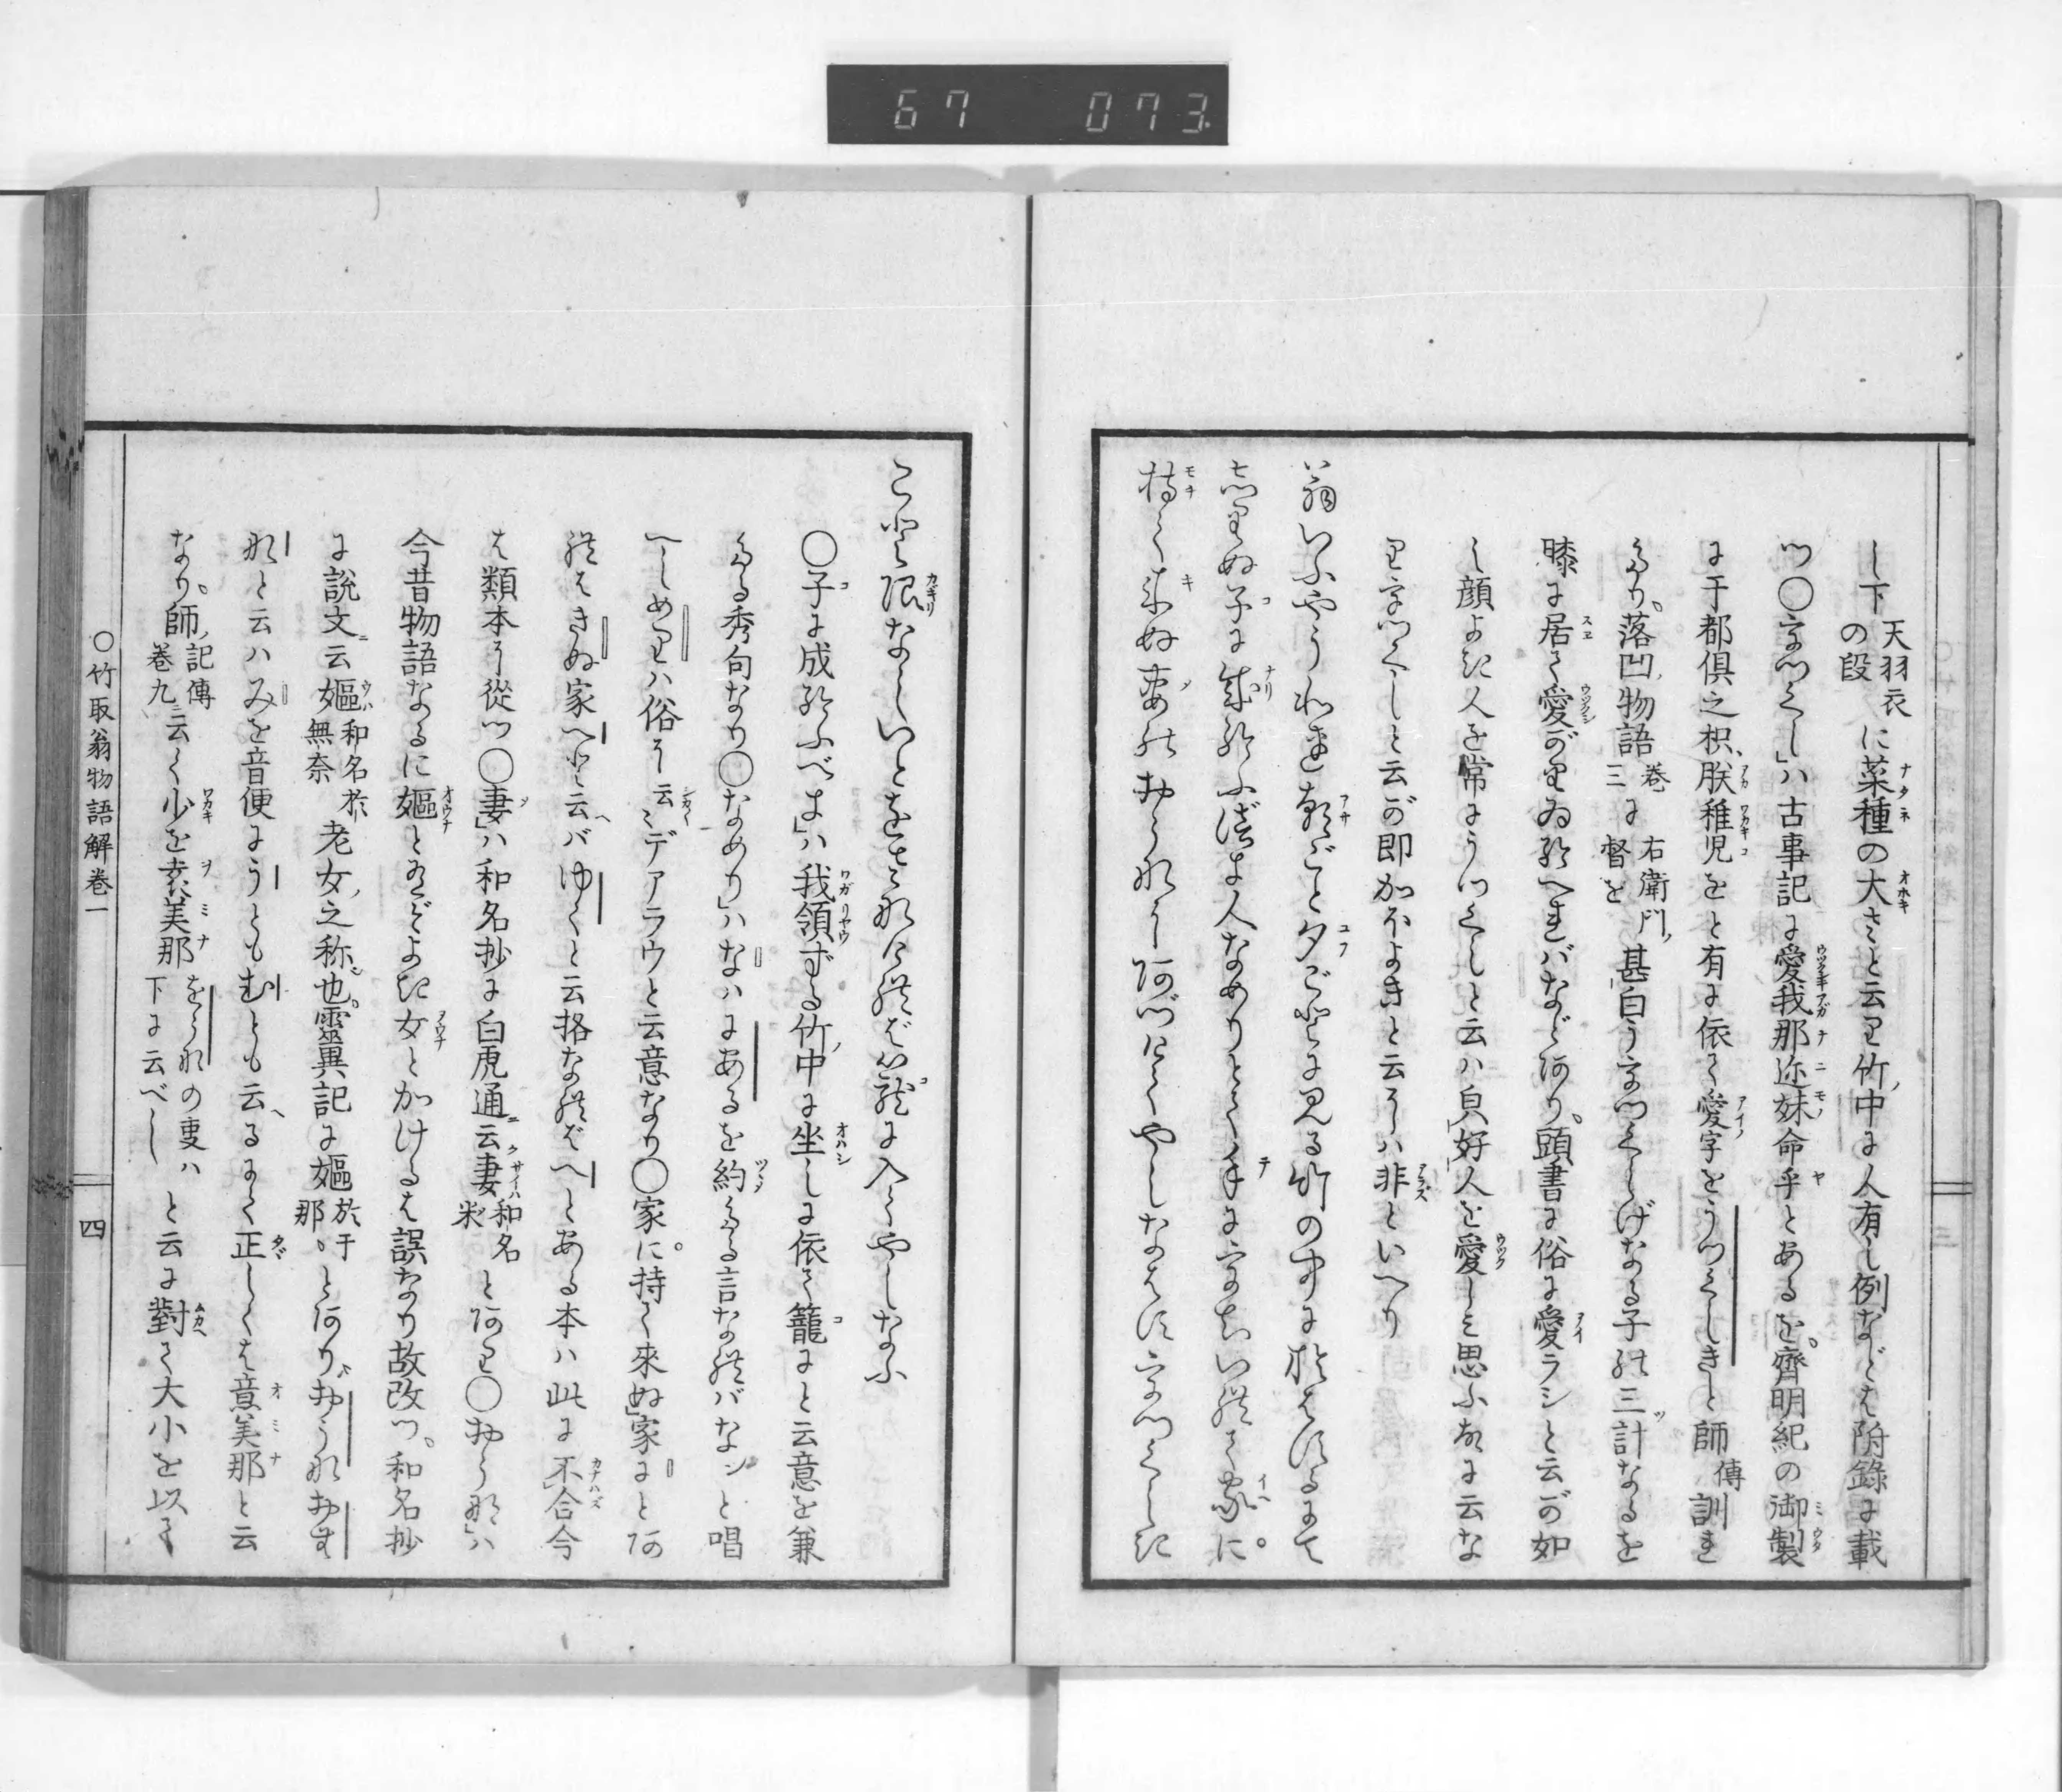 67 073
し下 天羽衣の段 に菜種の大さと云り竹ノ中に人有し例などは附録に載
つ○うつくし」ハ古事記に愛我那迩妹命乎とあるを齊明紀の御製
に于都倶之枳、朕稚児をと有に依て愛字をうつくしきと師傳訓れ
たり。落凹ノ物語 巻三 に 右衛門ノ督を 甚白ううつくしげなる子の三計なるを
膝に居て愛がりゐ給へればなどあり。頭書に俗に愛ラシと云が如
し顔よき人を常にうつくしと云ハ貞好人を愛しミ思ふ故に云な
りうつくしと云が即かほよきと云にハ非といへり
翁いふやうわれ朝ごと夕ごとに見る竹の中におはするにて
志りぬ子に成給ふべき人なめりとて手にうちいれて家に。
持て来ぬ妻のおうなにあづけてやしなはすうつくしき
こと限なしいとをさなければ籠に入てやしなふ
○子に成給ふべき」ハ我領ずる竹ノ中に坐しに依て籠にと云意を兼
たる秀句なり○なめり」ハなハにあるを約たる言なればなンと唱
へしめりハ俗にシカ〴〵云ミデアラウと云意なり○家に。持て來ぬ」家にとあ
ればきぬ家へと云バゆくと云格なればへとある本ハ此に不合今
は類本に從つ○妻」ハ和名抄に白虎通ニ云妻 和名米 とあり○おうな」ハ
今昔物語なるに嫗とあどよき女とかけるは誤なり故改つ。和名抄
に説文ニ云嫗 和名於無奈 老女ノ之称也。靈異記に嫗 於于那 とあり、おうなおむ
なと云ハみを音便にうともむとも云へるにて正しくは意美那と云
なり。師ノ記傳巻九ニ云く少を袁美那 をうなの叓ハ下に云べし と云に對て大小を以て
○竹取翁物語解巻一
四